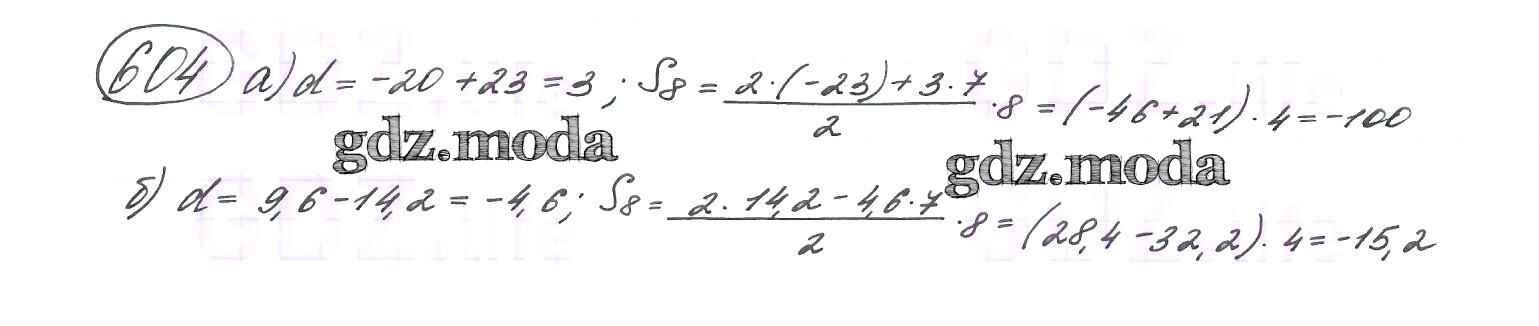 604 а) d = -20 + 23 = 3 ; S₈ = (2·(-23) + 3·7)/2 ·8 = (-46 + 21)·4 = -100
gdz.moda
gdz.moda
б) d = 9,6 - 14,2 = -4,6 ; S₈ = (2·14,2 - 4,6·7)/2 ·8 = (28,4 - 32,2)·4 = -15,2